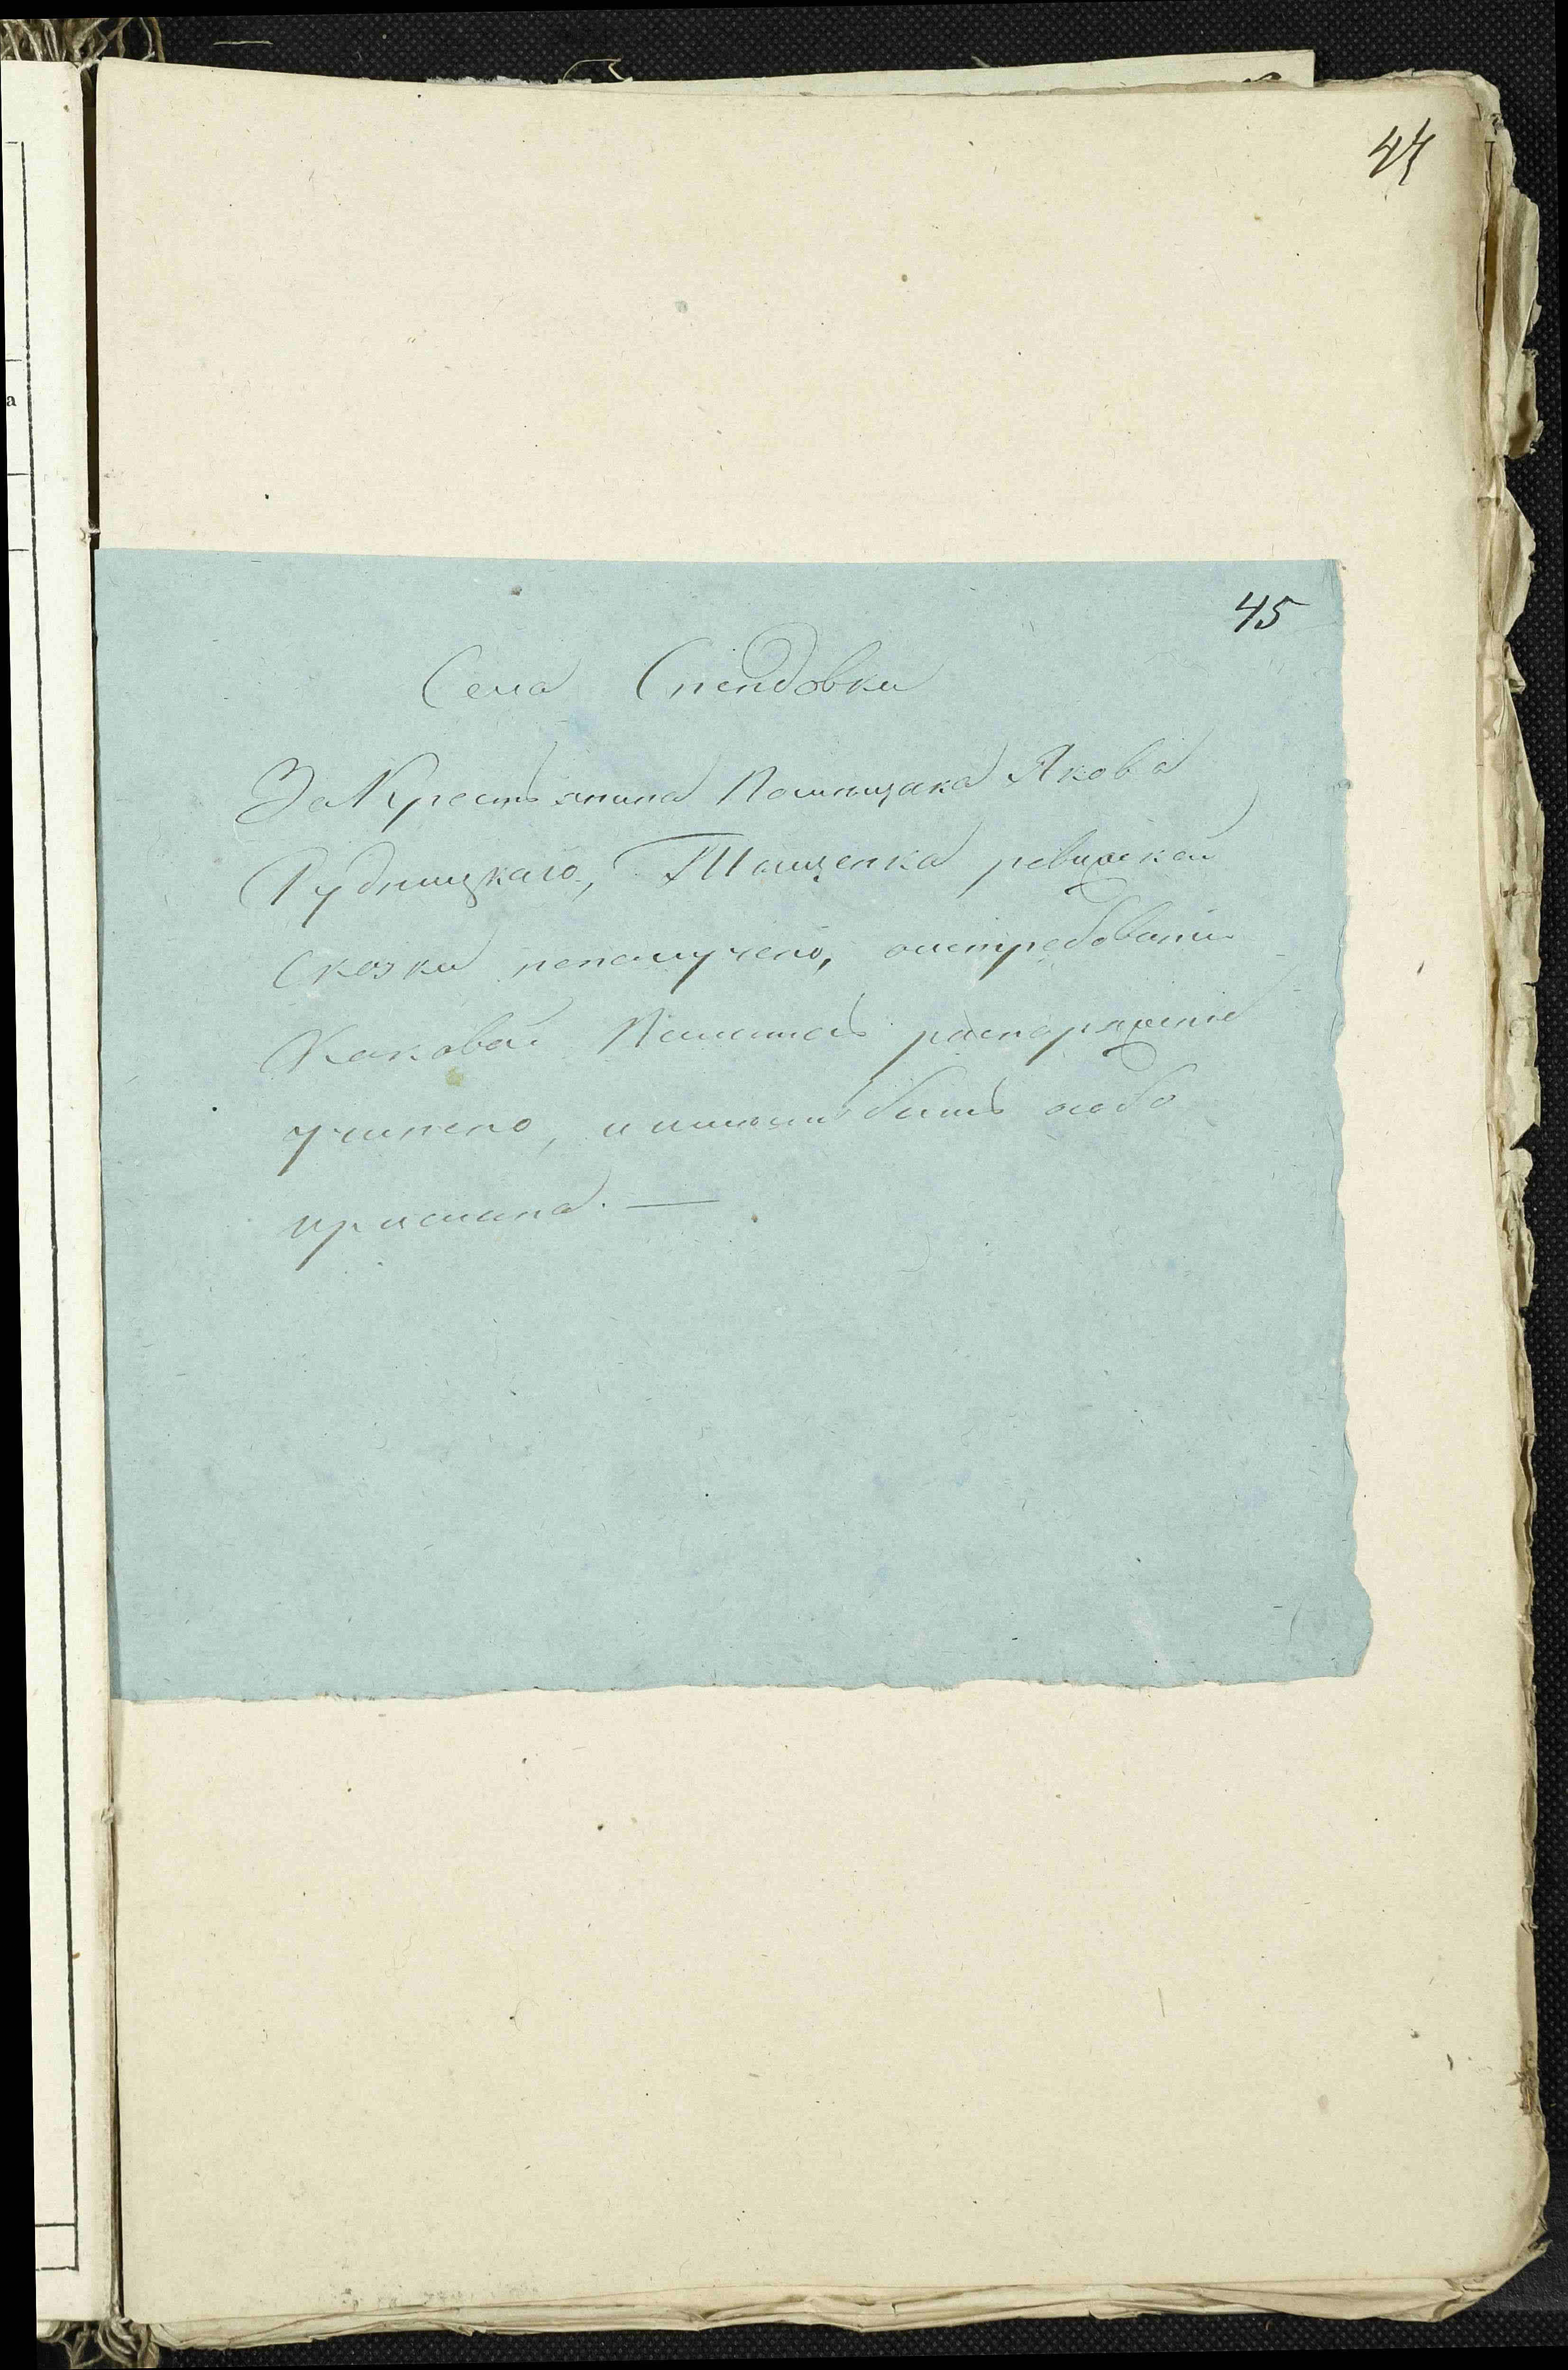 44
45
Села Спендовки
За Крестьянина Помещика Якова
Рудницкаго, Тищенка ревизской
Сказки неполучено, о истребовании
каковой Палатою распоряжение
учинено, и имеетъ быть особо
прислана. —
а